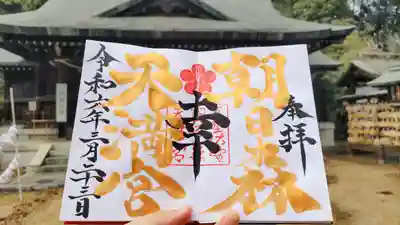 奉拝
朝日森
天満宮
令和六年三月二十三日